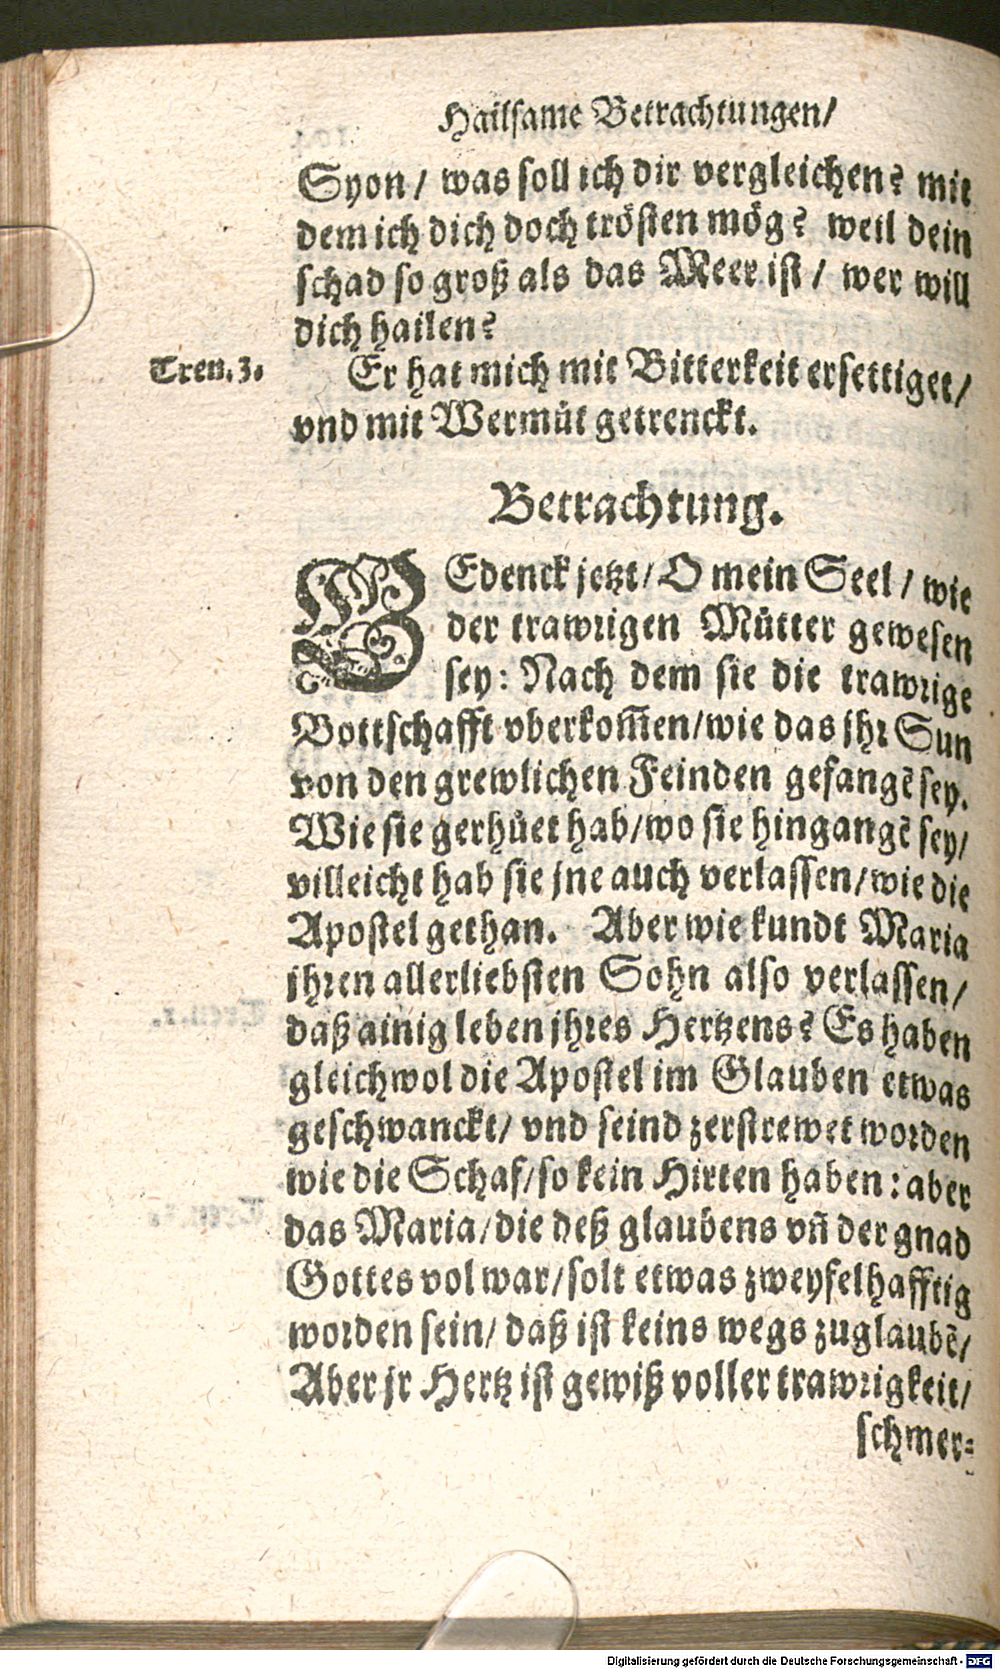 Hailsame Betrachtungen/
Syon/ was soll ich dir vergleichen? mit
dem ich dich doch trösten mög? weil dein
schad so groß als das Meer ist / wer will
dich hailen?
Tren. 3.
Er hat mich mit Bitterkeit ersettiget/
vnd mit Wermůt getrenckt.
Betrachtung.
GEdenck jetzt/ O mein Seel / wie
der trawrigen Můtter gewesen
sey: Nach dem sie die trawrige
Bottschafft vberkom̃en/wie das jhr Sun
von den grewlichen Feinden gefangẽ sey.
Wie sie gerhůet hab/wo sie hingangẽ sey/
villeicht hab sie jne auch verlassen/wie die
Apostel gethan. Aber wie kundt Maria
jhren allerliebsten Sohn also verlassen/
daß ainig leben jhres Hertzens? Es haben
gleichwol die Apostel im Glauben etwas
geschwanckt/ vnd seind zerstrewet worden
wie die Schaf/so kein Hirten haben: aber
das Maria/die deß glaubens vñ der gnad
Gottes vol war/solt etwas zweyfelhafftig
worden sein/ daß ist keins wegs zuglaubẽ/
Aber jr Hertz ist gewiß voller trawrigkeit/
schmer-
Digitalisierung gefördert durch die Deutsche Forschungsgemeinschaft - DFG